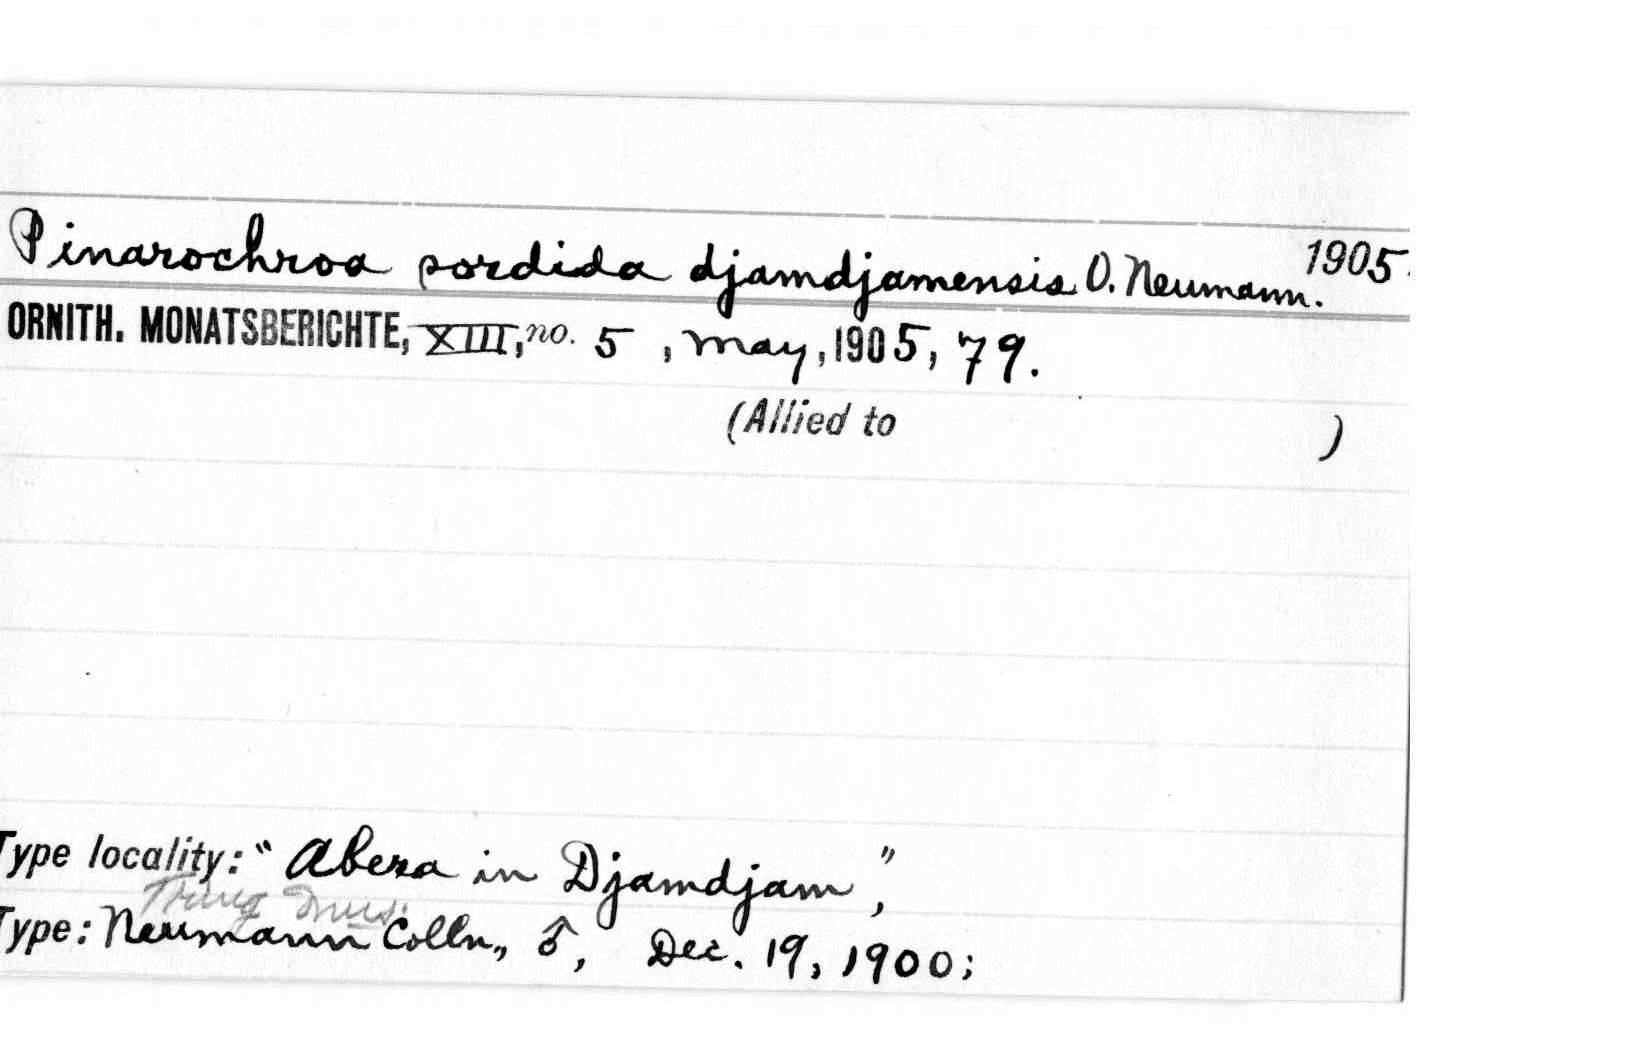 Pinarochroa sordida djamdjamensis O. Neumann. 1905.
ORNITH. MONATSBERICHTE, XIII, no. 5, May, 1905, 79.
(Allied to )
Type locality: "Abera in Djamdjam",
Tring Mus.
Type: Neumann Colln., ♂, Dec. 19, 1900;